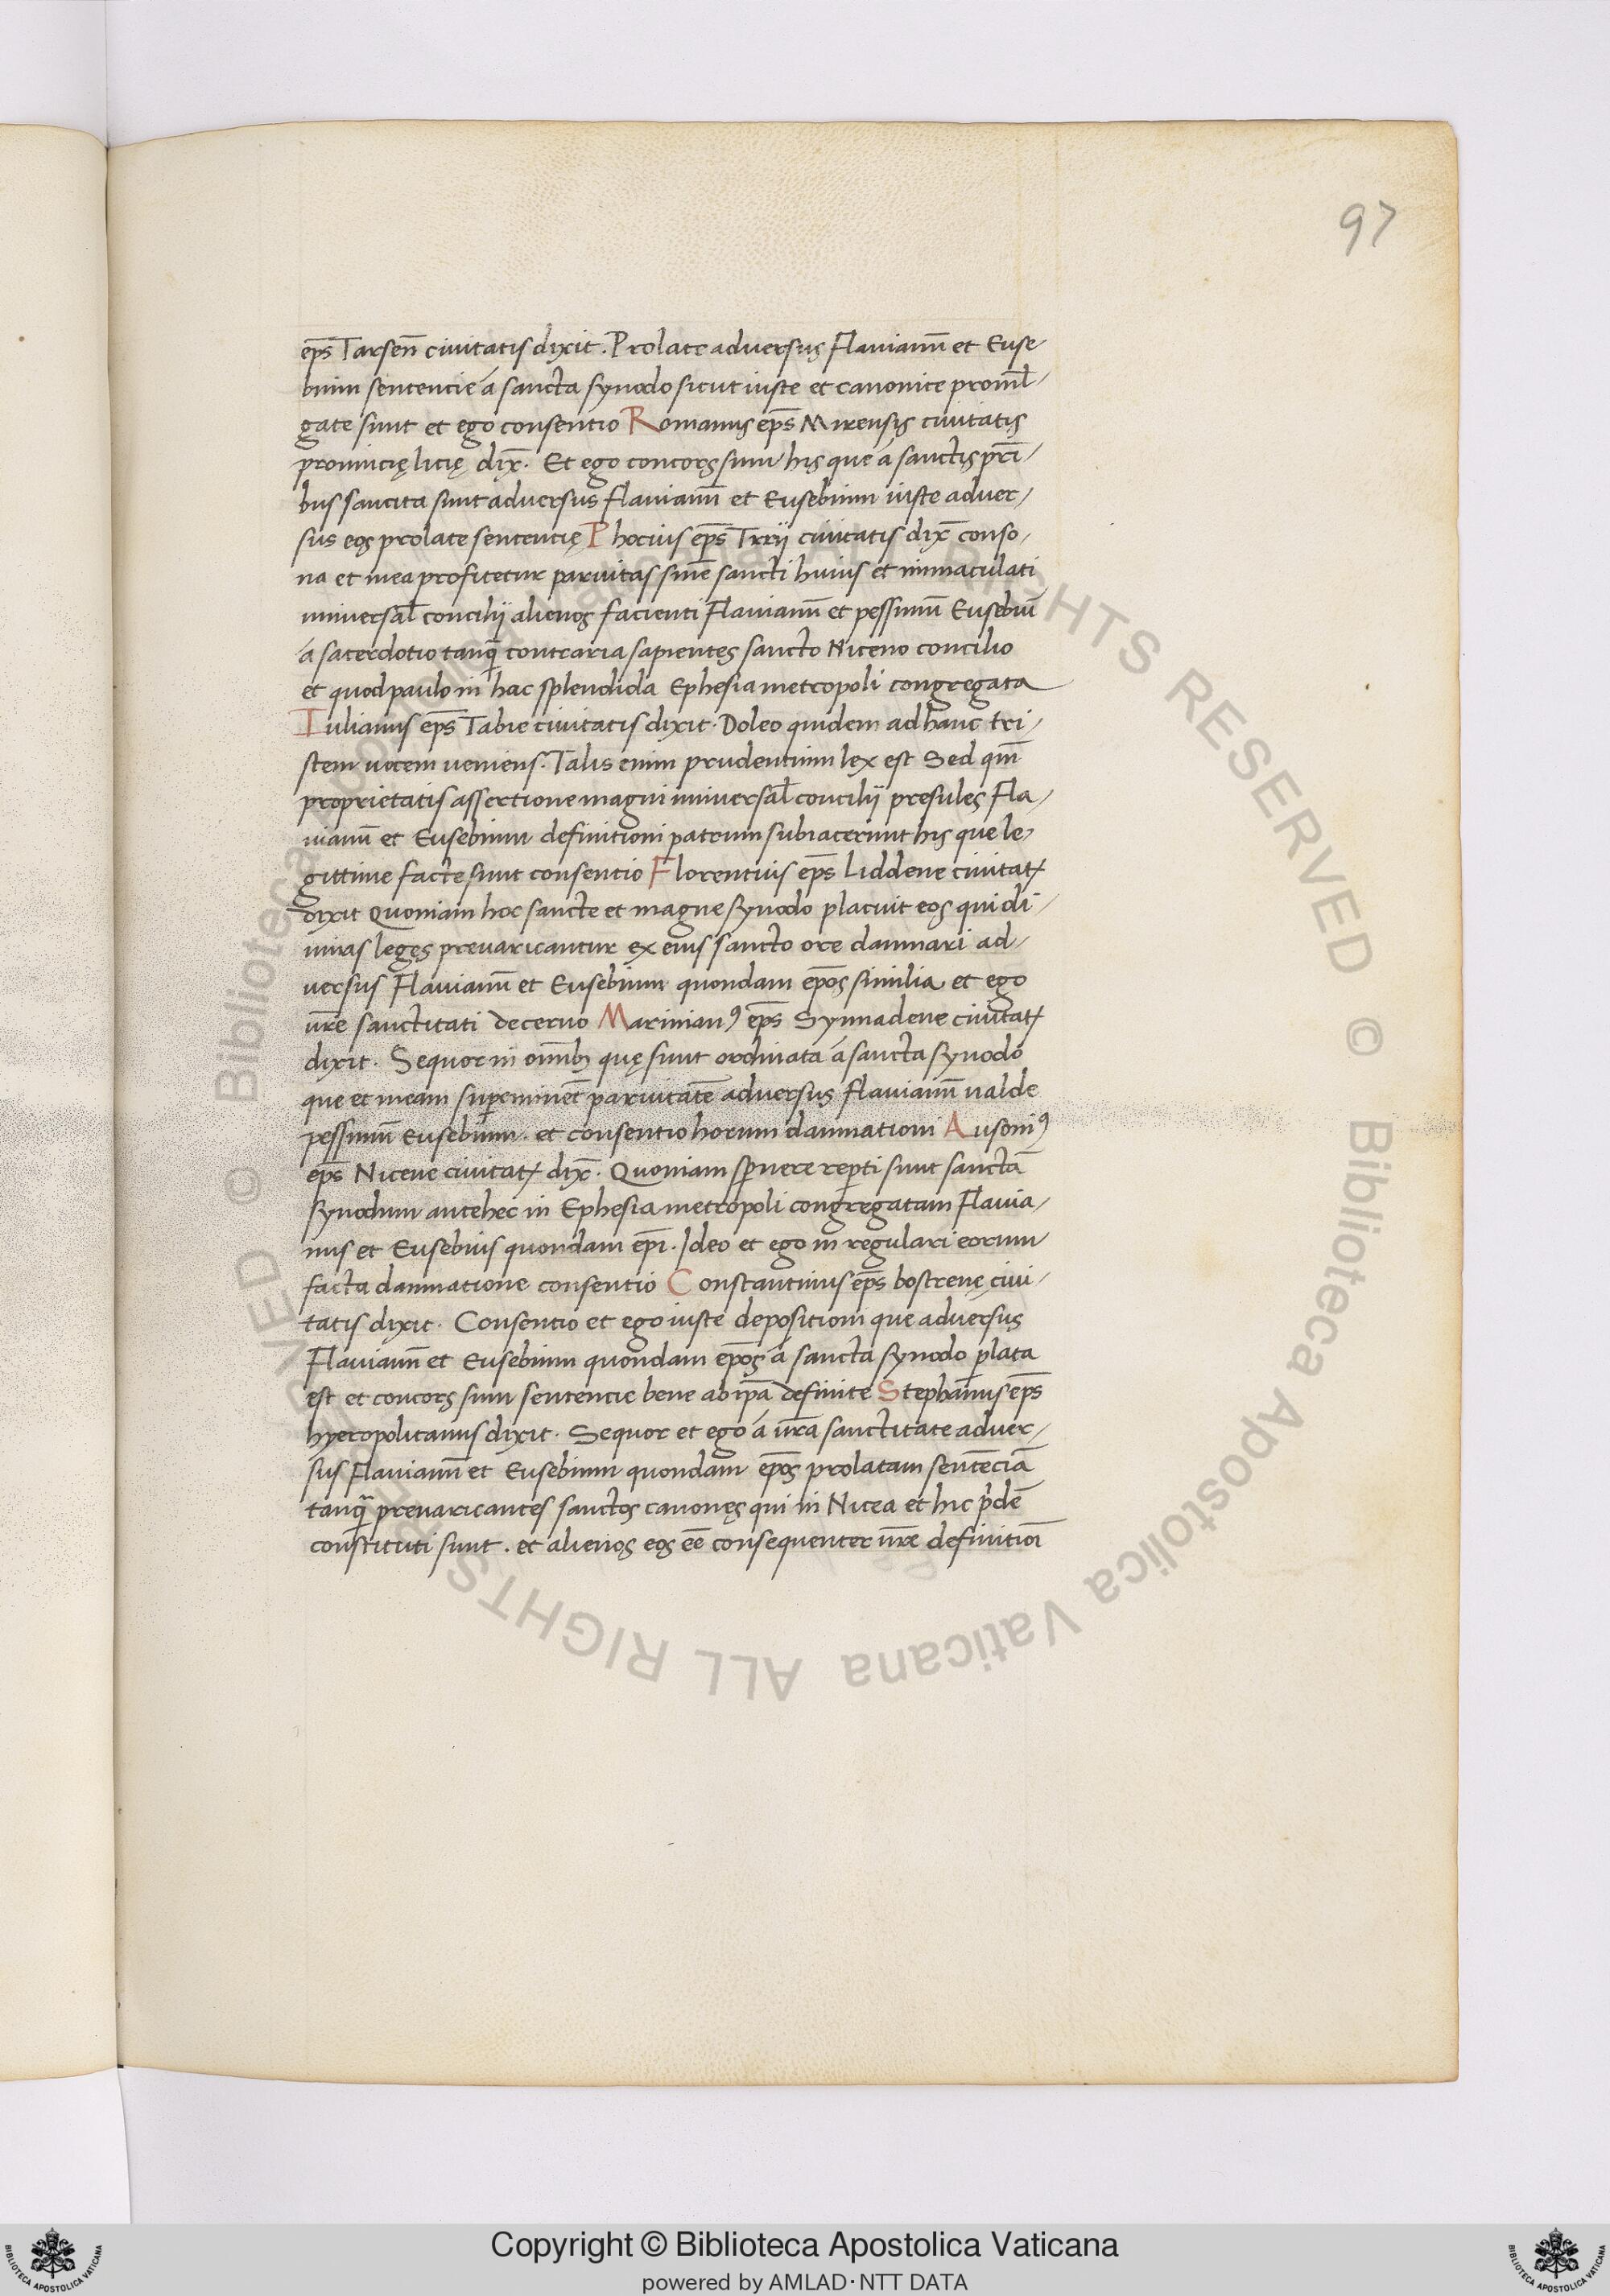 97
ep̄s Tarsen̄ ciuitatis dixit. Prolate adversus Flavianū et Euse-
bium sentencie á sancta synodo sicut iuste et canonice promł-
gate sunt et ego consentio Romanus ep̄s Mirensis ciuitatis
prouincię licię dix̄. Et ego concors sum his que á sanctis pr̄i-
bus sancita sunt adversus flavianū et Eusebium iuste adver-
sus eos prolate sentencię Phocius ep̄s Trrij ciuitatis dix̄ conso-
na et mea profitetur parvitas sn̄iē sancti huius et immaculati
universał concilij alienos facienti Flavianū et pessimū Eusebiū
á sacerdotio tanq̄ contraria sapientes sancto Niceno concilio
et quod paulo in hac splendida Ephesia metropoli congregata
Iulianus ep̄s Tabie ciuitatis dixit. Doleo quidem ad hanc tri-
stem vocem veniens. Talis enim prudentium lex est Sed qm̄
proprietatis assertione magni universał concilij presules Fla-
vianū et Eusebium definitioni patrum subiacerunt his que le-
gittime facte sunt consentio Florentius ep̄s Liddene ciuitatꝭ
dixit Quoniam hoc sancte et magne synodo placuit eos qui di-
vinas leges prevaricantur ex eius sancto ore damnari ad-
versus Flavianū et Eusebium quondam ep̄os similia et ego
vr̄e sanctitati decerno Marinianꝰ ep̄s Synnadene ciuitatꝭ
dixit. Sequor in om̄ibꝫ quę sunt ordinata á sancta synodo
que et meam suꝑeminet parvitatē adversus flavianū valde
pessimū Eusebium. et consentio horum damnationi Ausoniꝰ
ep̄s Nicene ciuitatꝭ dix̄. Quoniam sꝑnere reꝑti sunt sanctā
synodum antehec in Ephesia metropoli congregatam Flavia-
nus et Eusebius quondam ep̄i. Ideo et ego in regulari eorum
facta damnatione consentio Constantinus ep̄s bostrenę ciui-
tatis dixit. Consentio et ego iuste depositioni que adversus
Flavianū et Eusebium quondam ep̄os á sancta synodo ꝓlata
est et concors sum sentencie bene ab ip̄a definite Stephanus ep̄s
hyeropolitanus dixit. Sequor et ego á vr̄a sanctitate adver-
sus Flavianū et Eusebium quondam ep̄os prolatam sentēciā
tanq̄ prevaricantes sanctos canones qui in Nicea et hic pͥdē
constituti sunt. et alienos eos eē consequenter vr̄e definitiōi
© Biblioteca Apostolica Vaticana ALL RIGHTS RESERVED © Biblioteca Apostolica Vaticana ALL RIGHTS RESERVED
Copyright © Biblioteca Apostolica Vaticana
powered by AMLAD·NTT DATA
BIBLIOTECA APOSTOLICA VATICANA
BIBLIOTECA APOSTOLICA VATICANA